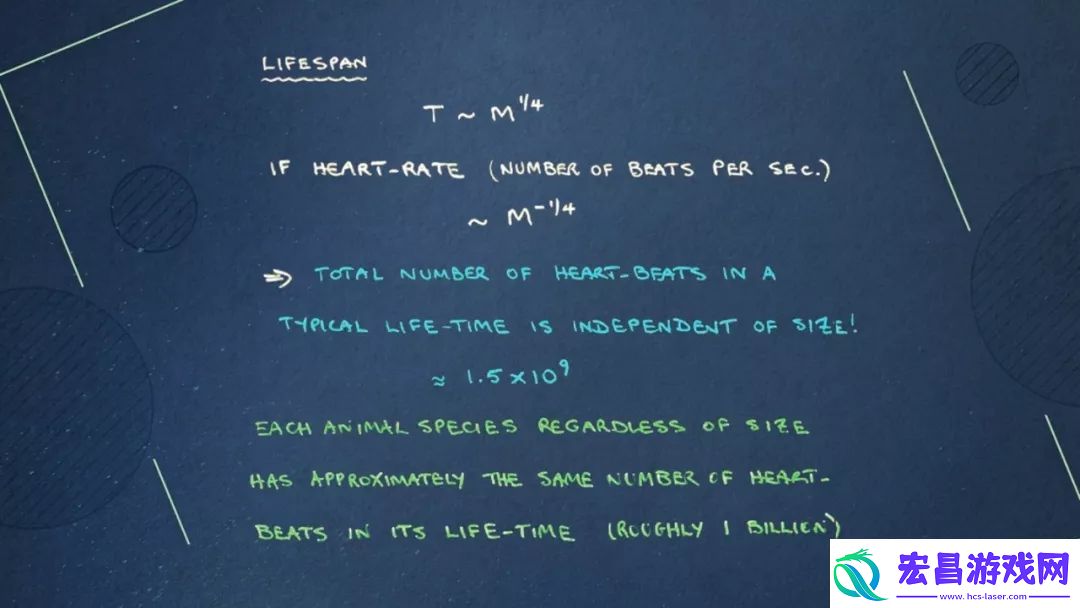 LIFESPAN
T ~ M^1/4
IF HEART-RATE (NUMBER OF BEATS PER SEC.)
~ M^-1/4
⇒ TOTAL NUMBER OF HEART-BEATS IN A
TYPICAL LIFE-TIME IS INDEPENDENT OF SIZE!
≈ 1.5×10^9
EACH ANIMAL SPECIES REGARDLESS OF SIZE
HAS APPROXIMATELY THE SAME NUMBER OF HEART-
BEATS IN ITS LIFE-TIME (ROUGHLY 1 BILLION)
宏昌游戏网
www.hcs-laser.com